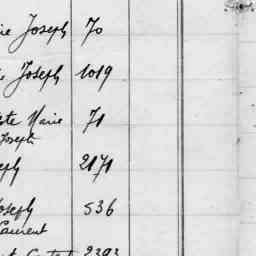 Joseph 70
Joseph 1019
Marie 71
Joseph
2171
Joseph 536
Laurent
2393